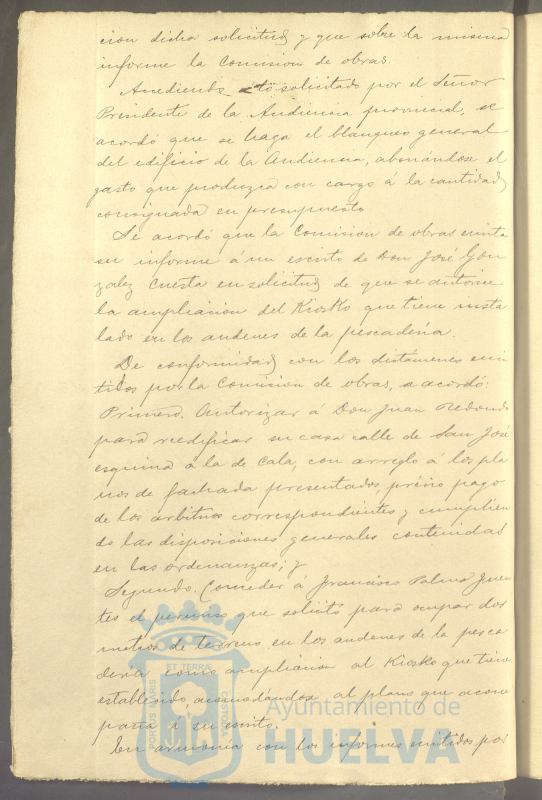 cion dicha solicitud y que sobre la misma
informe la Comision de obras.
Accediendo á lo solicitado por el Señor
Presidente de la Audiencia provincial, se
acordó que se haga el blanqueo general
del edificio de la Audiencia, abonándose el
gasto que produzca con cargo á la cantidad
consignada en presupuesto
Se acordó que la Comision de obras emita
su informe á un escrito de Don José Gon
zalez Cuesta en solicitud de que se autorice
la ampliacion del Kiosko que tiene insta
lado en los andenes de la pescadería.
De conformidad con los dictamenes emi
tidos por la Comision de obras, se acordó:
Primero. Autorizar á Don Juan Redondo
para reedificar su casa calle de San José
esquina á la de Cala, con arreglo á los pla
nos de fachada presentados, prévio pago
de los arbitrios correspondientes y cumplien
do las disposiciones generales contenidas
en las ordenanzas; y
Segundo. Conceder á Francisco Palma Fuen
tes el permiso que solicitó para ocupar dos
metros de terreno en los andenes de la pesca
dería como ampliacion al Kiosko que tiene
establecido, acomodándose al plano que acom
paña á su escrito.
En armonía con los informes emitidos por
PORTUS MARIS ET TERRÆ CUSTODIA
Ayuntamiento de
HUELVA